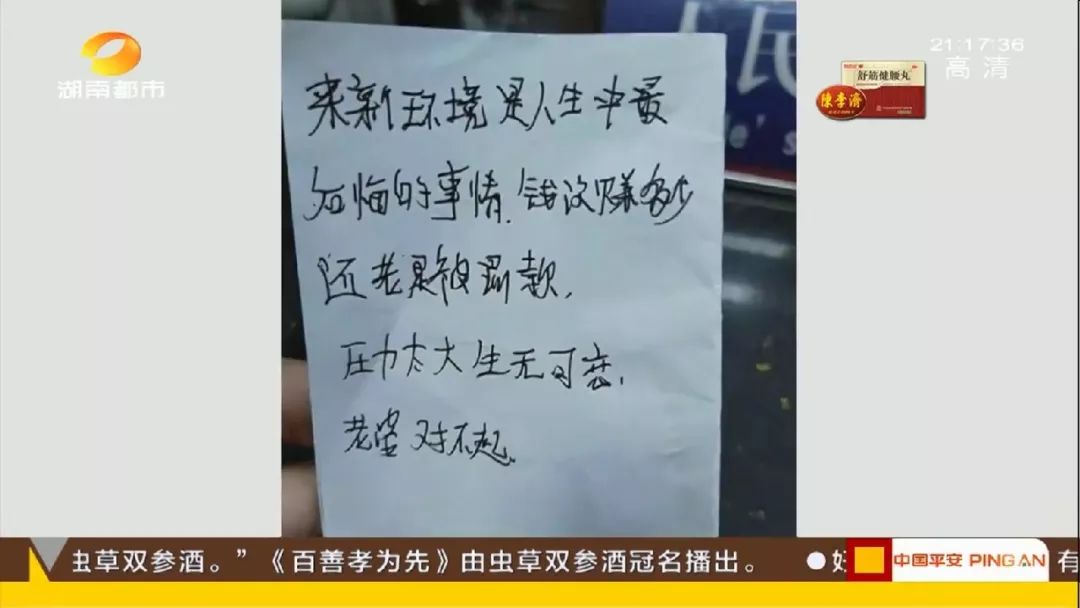 湖南都市
21:17:36
高清
舒筋健腰丸
陳李濟
民
e's
来新环境是人生中最
后悔的事情,钱没赚多少
还老是被罚款,
压力太大生无可恋,
老婆对不起.
虫草双参酒。”《百善孝为先》由虫草双参酒冠名播出。
中国平安 PING AN
有